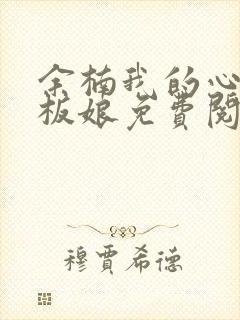 余楠我的心
板娘免费阅
穆賈希德